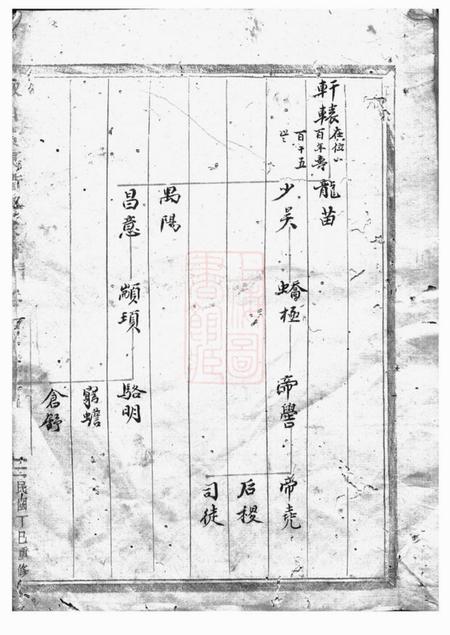 軒轅
在位
百年壽
百十五
龍苗
少昊 蟜極 帝嚳 帝堯
后稷
司徒
禺陽
昌意 顓頊 駱明
窮蟬
倉舒
民國丁巳重修
上海圖書館藏